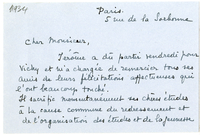 Paris.
5 rue de la Sorbonne
Cher Monsieur,
Jérôme a dû partir vendredi pour
Vichy et m'a chargée de remercier tous ses
amis de leurs félicitations affectueuses qui
l'ont beaucoup touché.
Il sacrifie momentanément ses chères études
à la cause commune du redressement et
de l'organisation des études et de la jeunesse